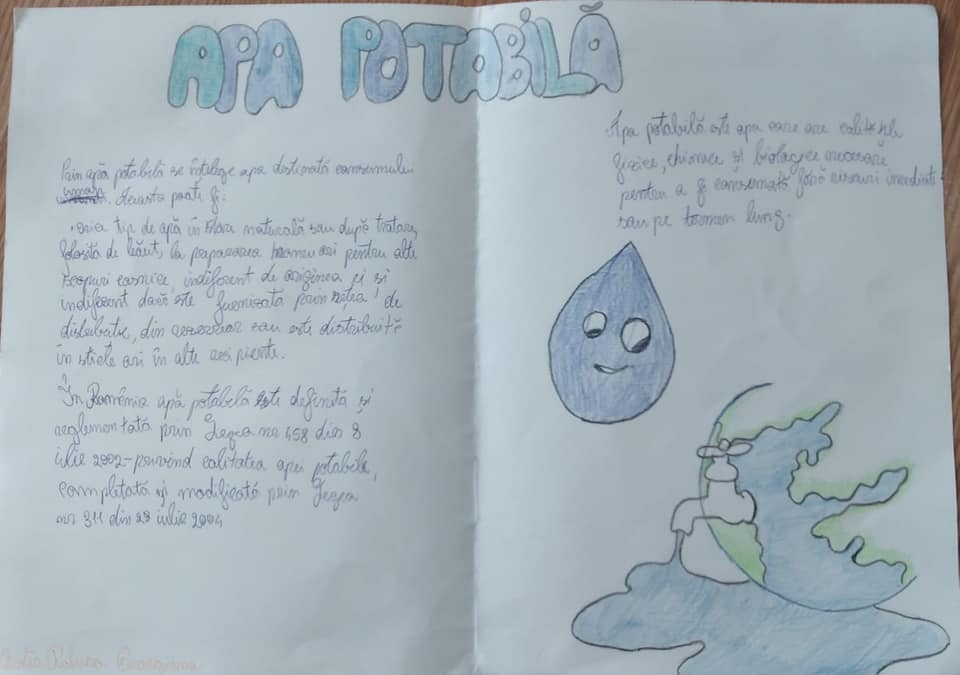 APA POTABILĂ
Prin apă potabilă se înțelege apa destinată consumului
uman. Aceasta poate fi:
• orice tip de apă în stare naturală sau după tratare,
folosită de băut, la prepararea hranei ori pentru alte
scopuri casnice, indiferent de originea ei și
indiferent dacă este furnizată prin rețea de
distribuție, din rezervor sau este distribuită
în sticle ori în alte recipiente.
În România apă potabilă este definită și
reglementată prin Legea nr 458 din 8
iulie 2002-privind calitatea apei potabile,
completată și modificată prin Legea
nr 311 din 28 iulie 2004
Apa potabilă este apa care are calitățile
fizice, chimice și biologice necesare
pentru a fi consumată fără riscuri imediate
sau pe termen lung.